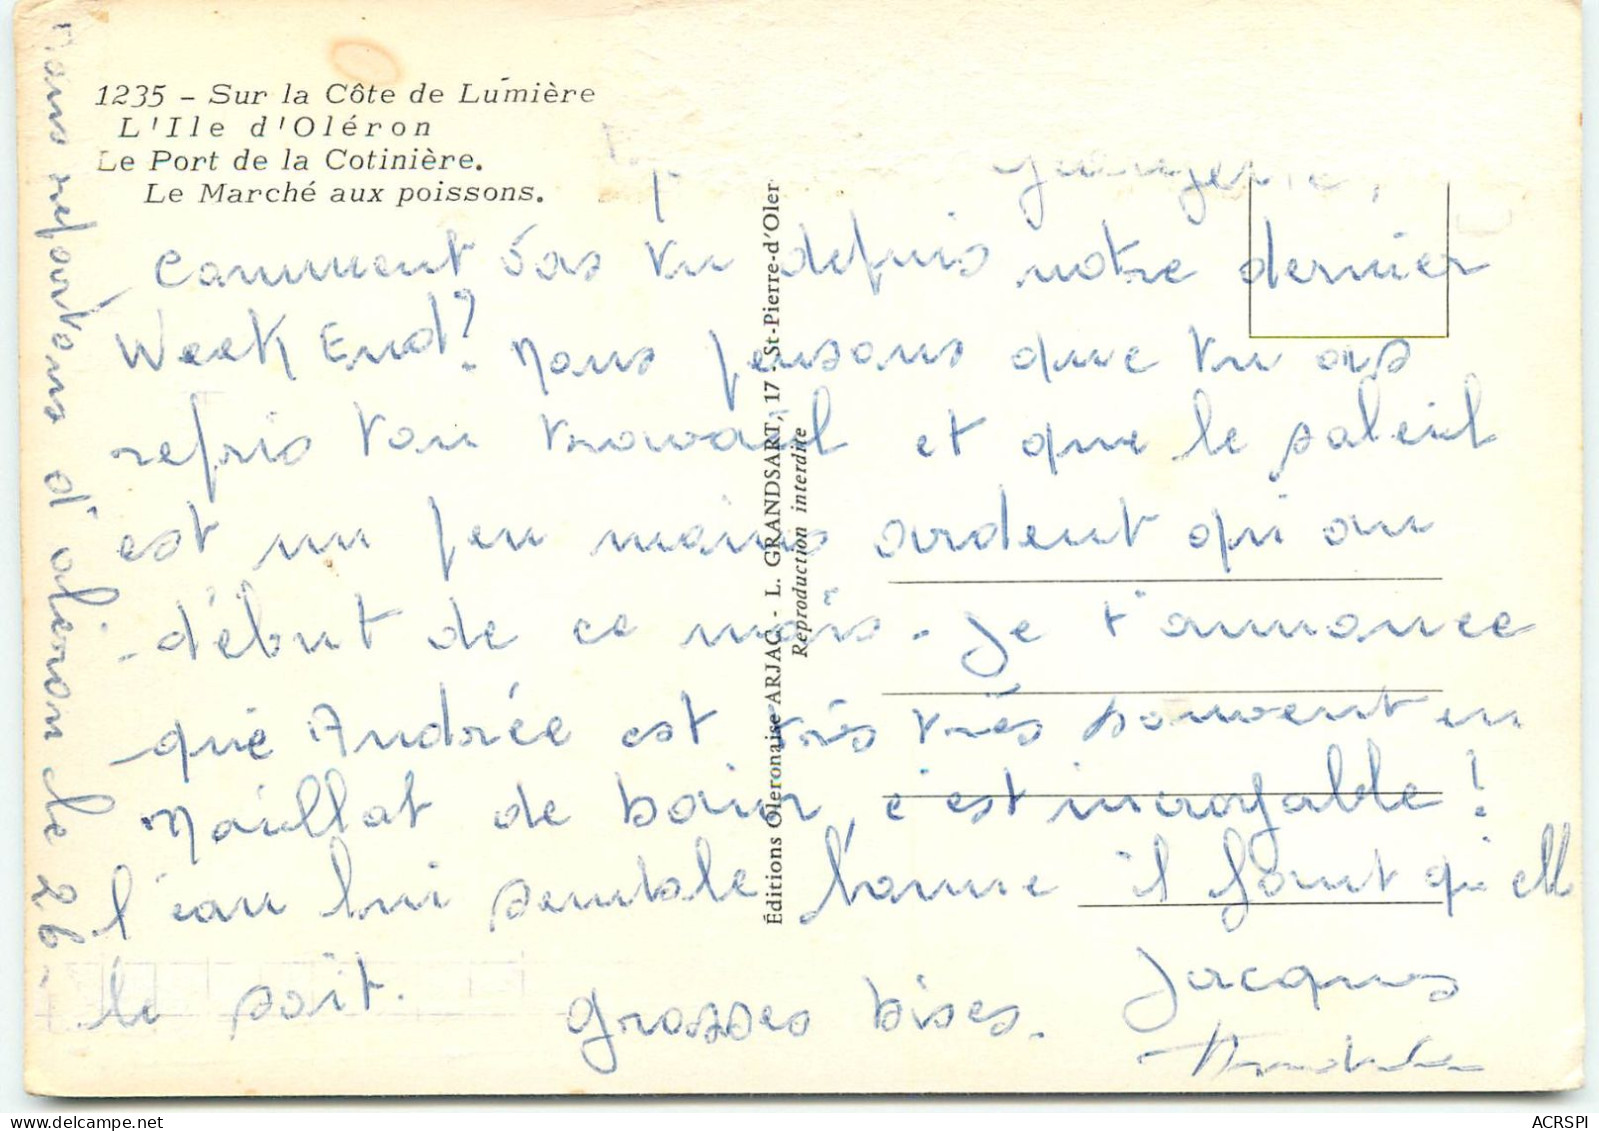 1235 - Sur la Côte de Lumière
L'Ile d'Oléron
Le Port de la Cotinière.
Le Marché aux poissons.
Comment vas tu depuis notre dernier
Week End? Nous pensons que tu as
repris ton travail et que le soleil
est un peu moins ardent qu'au
début de ce mois. Je t'annonce
que Andrée est très très souvent en
Maillot de bain, c'est incroyable!
l'eau lui semble bonne il faut qu'elle
le soit.
Grosses bises. Jacques
Andrée
Nous repartons d'oléron le 26-
Éditions Oleronaise ARJAC - L. GRANDSART, 17 - St-Pierre-d'Oler
Reproduction interdite
ACRSPI